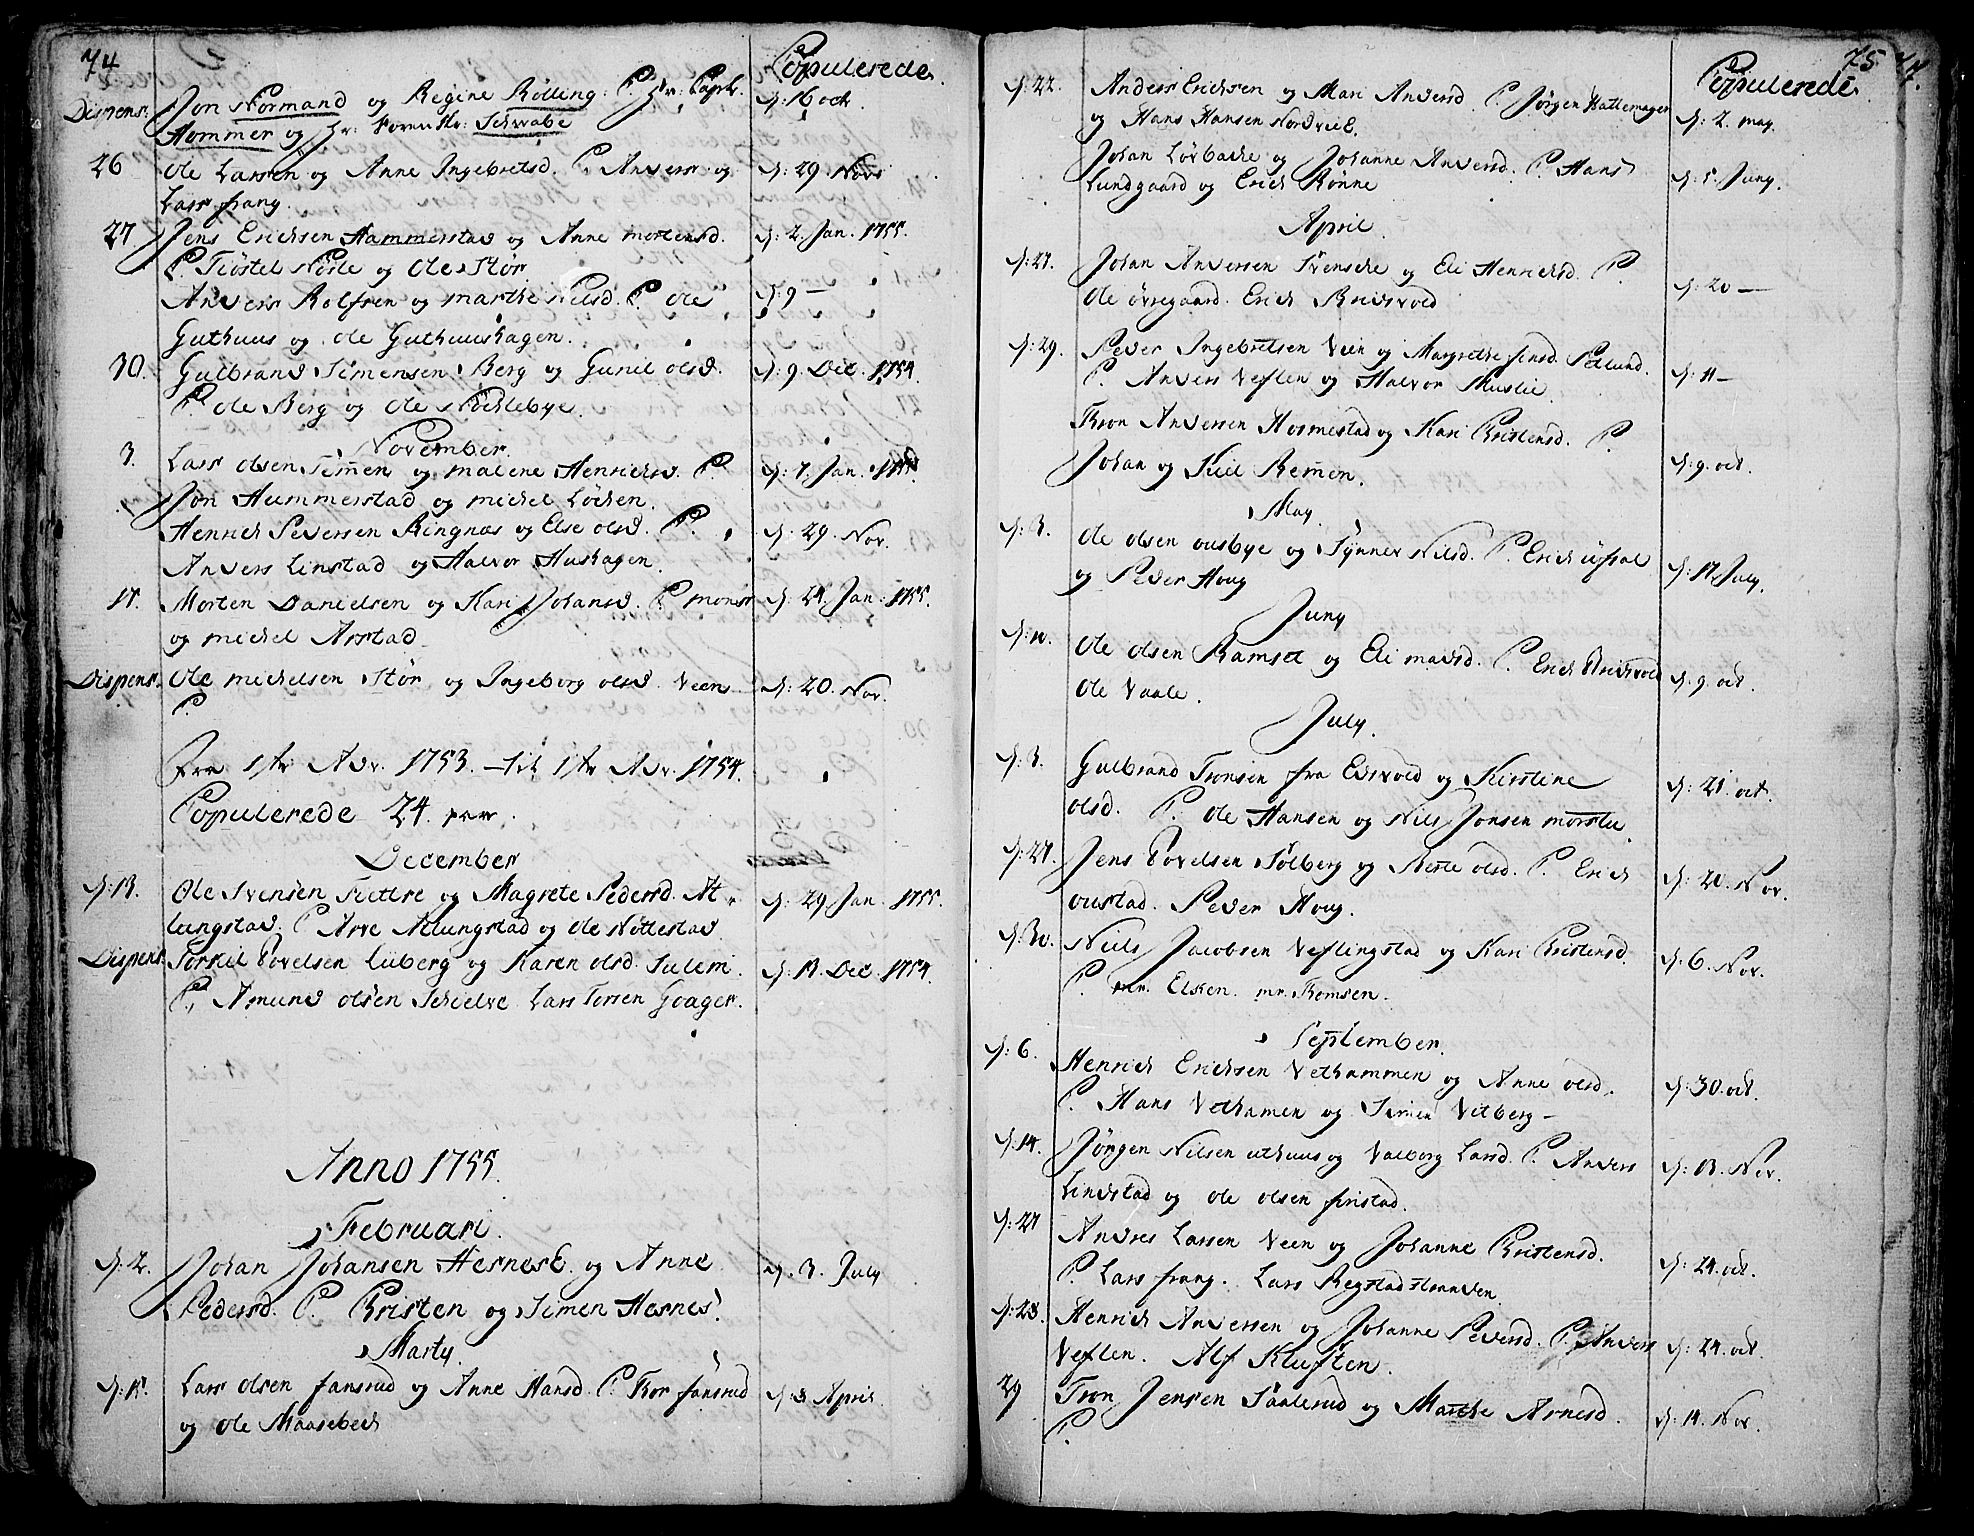 74
Copulerede.
Dispens: Jon Normand og Regine Rölling. C. Hr: Capt. d: 16 oct.
Hommer og Hr: Schwabe
26 Ole Larsen og Anne Ingebretsd. C. Anders og d: 29 Nov:
Lars frang.
27 Jens Erichsen Hammerstad og Anne Mortensd. d: 2. Jan. 1755.
C. Tiöstel Nösle og Ole Stör
Anders Rolfsen og Marthe Nilsd. C. Ole d: 9 —
Guthuus og Ole Guthuushagen.
30. Gulbrand Simensen Berg og Gunil olsd. d: 9. Dec. 1754.
C. Ole Berg og Ole Nöchlebye.
November.
3. Lars olsen Simen og Malene Henrichsd. C. d: 7. Jan. 1755.
Jon Hummerstad og Michel Löchen.
Henrich Pedersen Ringnæs og Else olsd. C. d: 29. Nov.
Anders Linstad og Halvor Hushagen.
17. Morten Danielsen og Kari Johansd. C. Mons d: 24. Jan: 1755.
og Michel Arstad
Dispens. Ole Michelsen Stör og Ingeborg olsd. Veen d: 20. Nov.
C.
Fra 1ste Adv. 1753. til 1ste Adv. 1754.
Copulerede 24. par.
December
d: 13. Ole Svensen Tuttre og Magrete Pedersd. At- d: 29 Jan. 1755.
lungstad. C. Arve Atlungstad og Ole Nöttestad
Dispens: Torkil Povelsen Liiberg og Karen olsd. Julem. d: 13. Dec. 1754.
C. Amund olsen Schielve. Lars Torsen Goager.
Anno 1755.
Februari.
d: 2. Johan Johansen HernesE. og Anne d. 3. July
Pedersd. C. Kristen og Simen Hernes.
Marty.
d: 15. Lars olsen fansrud og Anne Hansd. C. Thor fansrud d: 3 April.
og Ole Maasebech
75
Copulerede.
d: 22. Anders Erichsen og Mari Andersd. C. Jörgen Hattemager d: 2. may.
og Hans Hansen NordviE.
Johan Lörbache og Johanne Andersd. C. Hans d: 5. Juny.
Lundgaard og Erich Rönne
April.
d: 27. Johan Andersen Svensche og Eli Henrichsd. C. d: 20 —
Ole övregaard. Erich Bridsvold
d: 29. Peder Ingebretsen Veen og Margrethe Jensd. d: 11 —
C. Anders Veflen og Halvor Muslie.
Tron Andersen Hosmestad og Kari Christensd. C. d: 9. oct.
Johan og Kiil Remen.
May.
d: 3. Ole olsen ousbye og Synnev Nilsd. C. Erich d: 17 July.
og Peder Houg
Juny
d: 10. Ole olsen Ramset og Eli Madsd. C. Erich Bridsvold d: 9. oct.
Ole Vaale.
July.
d: 3. Gulbrand Tronsen fra Edsvold og Kirstine d: 21. oct.
olsd. C. Ole Hansen og Nils Jonsen Morstue.
d: 27. Jens Povelsen Solberg og Berte olsd. C. Erich d: 20. Nov.
oustad. Peder Houg.
d: 30. Niels Jacobsen Veflingstad og Kari Christensd. d: 6. Nov.
C. mr. Elsken. mr. Thomsen.
September.
d: 6. Henrich Erichsen Vethammen og Anne olsd. d: 30. oct.
C. Hans Vethamen og Simen Vitberg —
d: 14. Jörgen Nilsen uthuus og Valborg Larsd. C. Anders d: 13. Nov.
Lindstad og Ole olsen finstad.
d: 27 Andres Larsen Veen og Johanne Christensd. d: 24. oct.
C. Lars frang. Lars Regstad stranden.
d: 28. Henrich Andersen og Johanne Pedersd. C. Anders d: 24. oct.
Veflen. Alf Kluften.
29 Tron Jensen Saalerud og Marthe Arnesd. d: 14. Nov.
C.